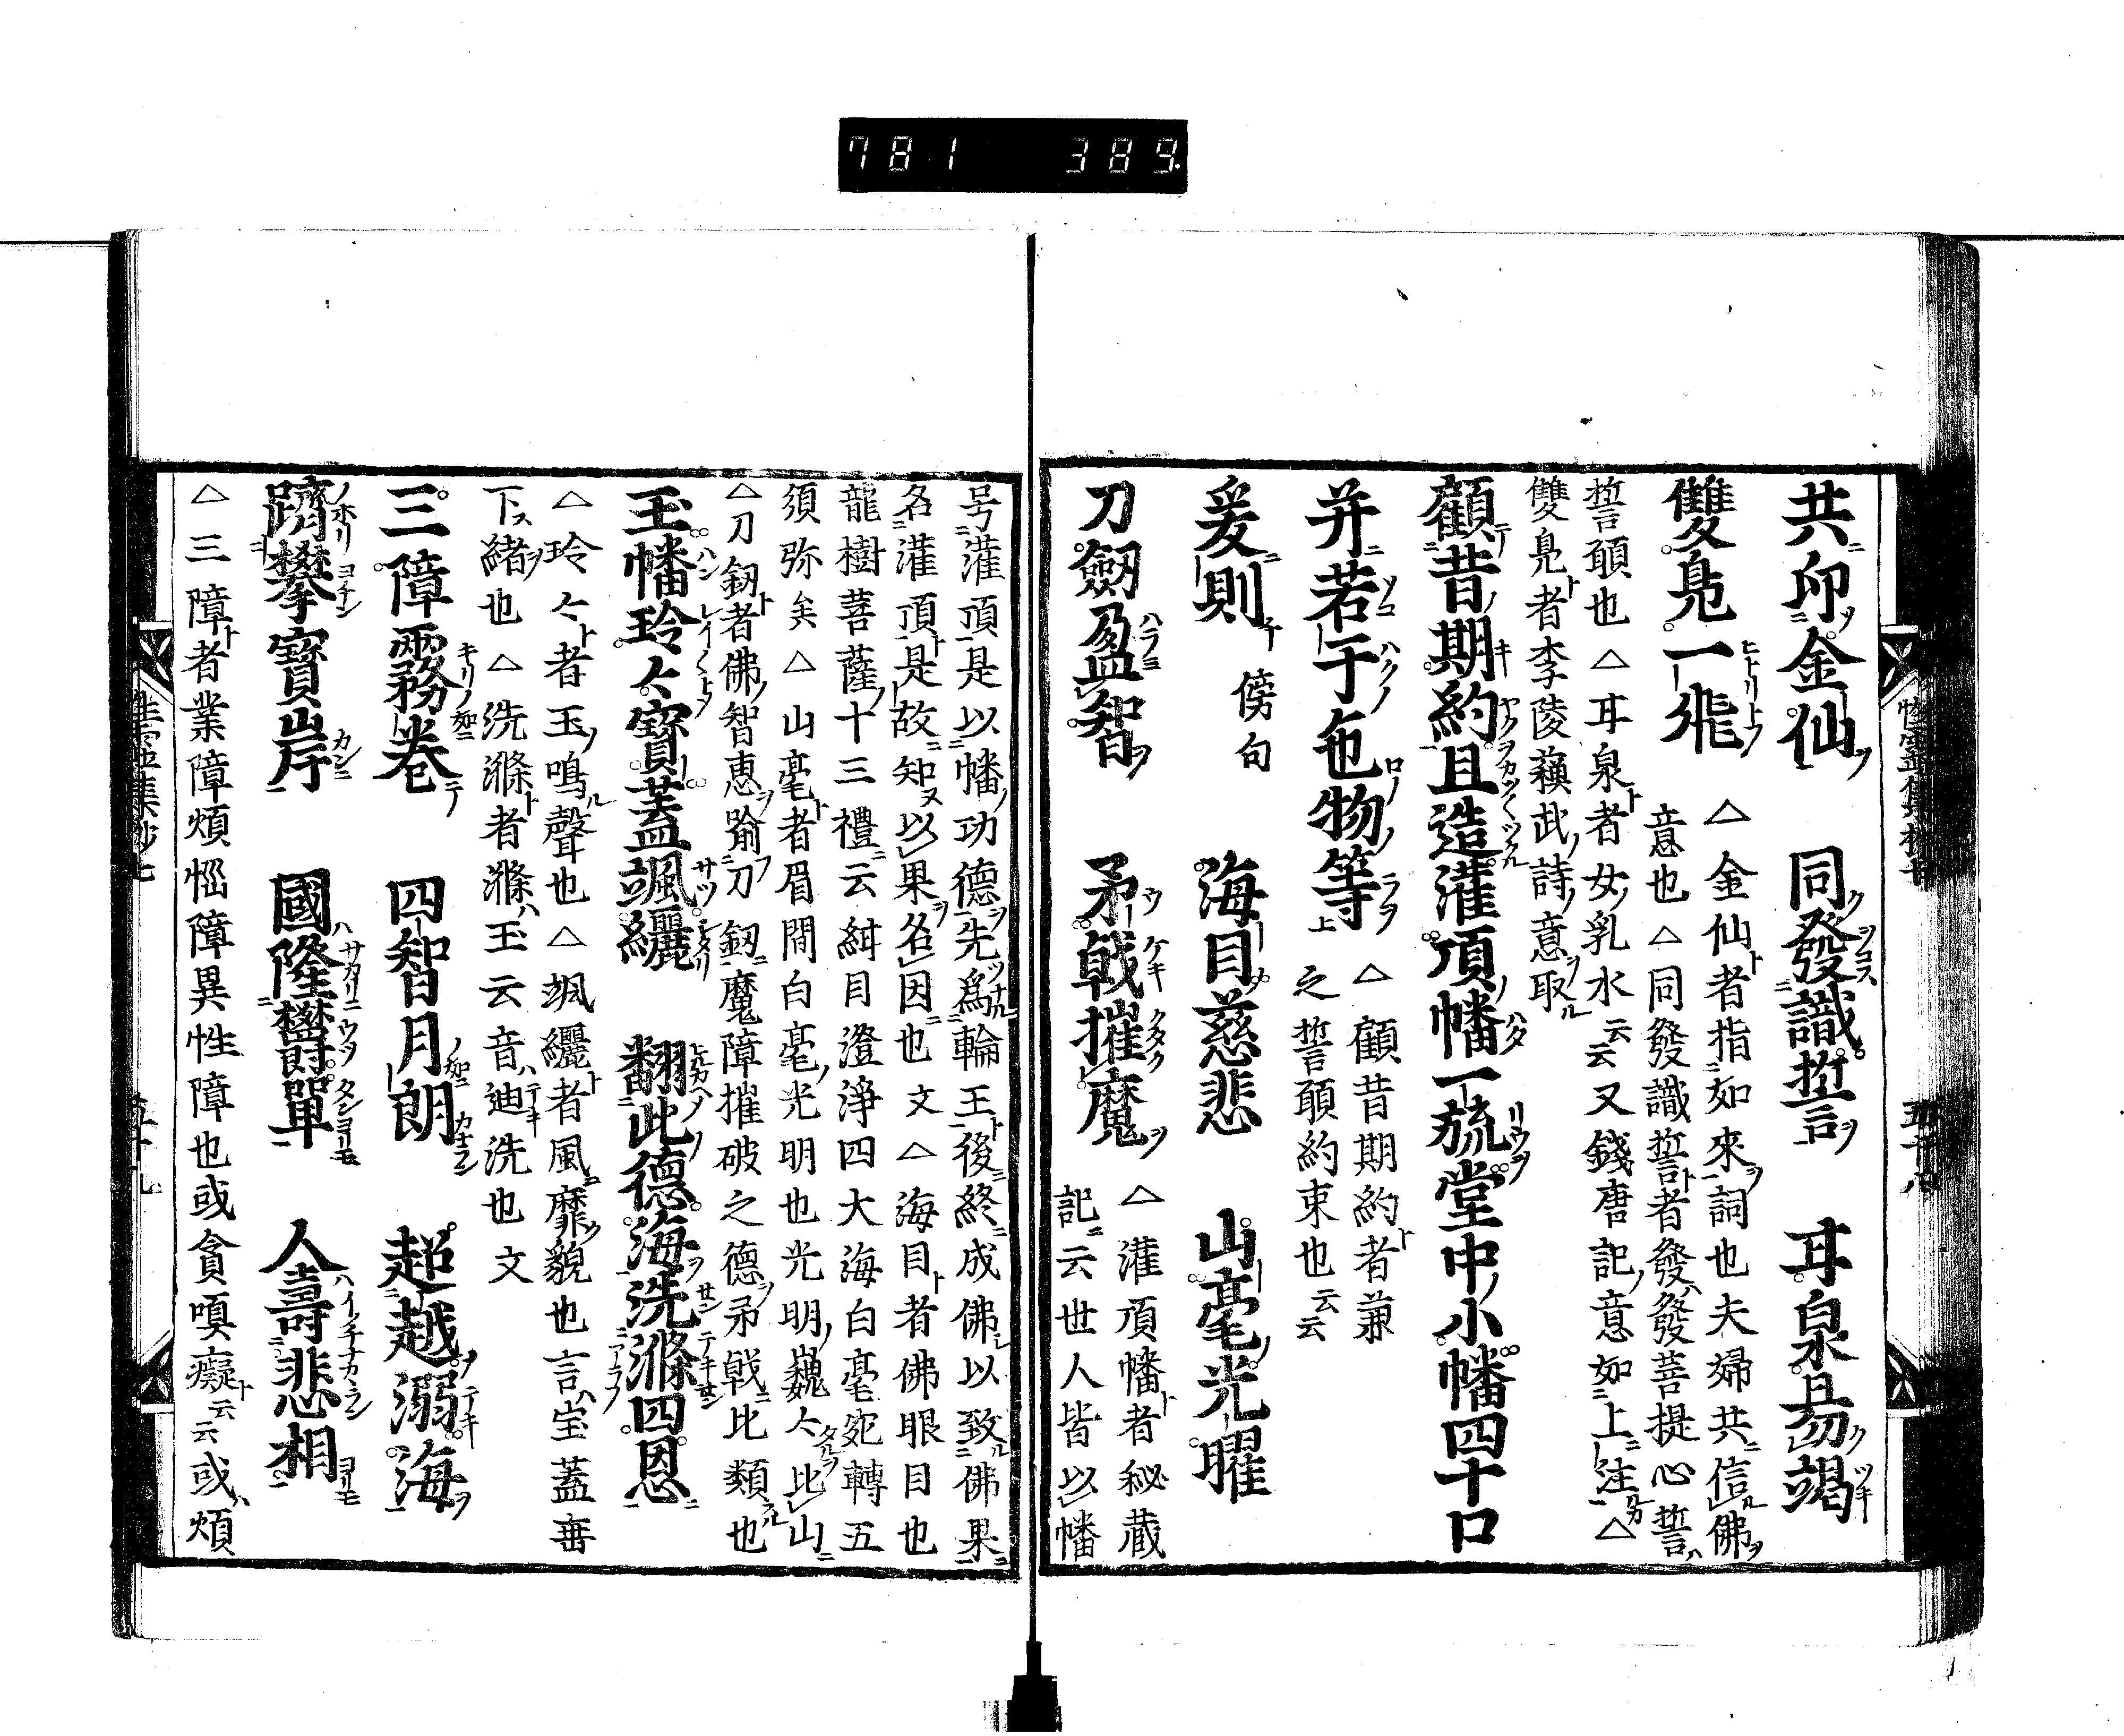 781 389.
共印金仙 同發識誓 耳泉易竭
雙鳧一飛 △金仙者指如來詞也夫婦共信佛
意也△同發識誓者發發菩提心誓
誓願也△耳泉者女乳水云云又錢唐記意如上注△
雙鳧者李陵蘓武詩意取
顧昔期約且造灌頂幡一旒堂中小幡四十口
并若干色物等 △顧昔期約者兼
之誓願約束也云云
爰則 傍句 海目慈悲 山毫光曜
刀劔盈智 矛戟摧魔 △灌頂幡者秘蔵
記云世人皆以幡
号灌頂是以幡功德先爲輪王後終成佛以致佛果
名灌頂是故知以果名因也文△海目者佛眼目也
龍樹菩薩十三禮云紺目澄淨四大海白毫宛轉五
須弥矣△山毫者眉間白毫光明也光明巍々比山
△刀釼者佛智恵喻刀釼魔障摧破之德矛戟比類也
玉幡玲々寶蓋颯纚 翻此德海洗滌四恩
△玲々者玉鳴聲也△颯纚者風靡貌也言宝蓋垂
下緒也△洗滌者滌玉云音迪洗也文
三障霧卷 四智月朗 超越溺海
躋攀寶岸 國隆欝單 人壽悲相
△三障者業障煩惱障異性障也或貪嗔癡云云或煩
性霊集抄七
五十八